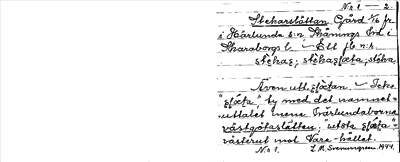 No 1 — 2.
Stekarslättan. Gård 1/6 fr
i Härlunda s:n, Skånings hd i
Skaraborgs l. — Ett fb n:r
stekas; stekasfäta; steka
Även utt. fäctan. — Icke
"fjäta" ty med det namnet
uttalet mena Härlundaborna
västgötaslätten; "utota fjäta"
västerut mot Vara-hållet.
No 1. L. M. Svenungsson 1944.